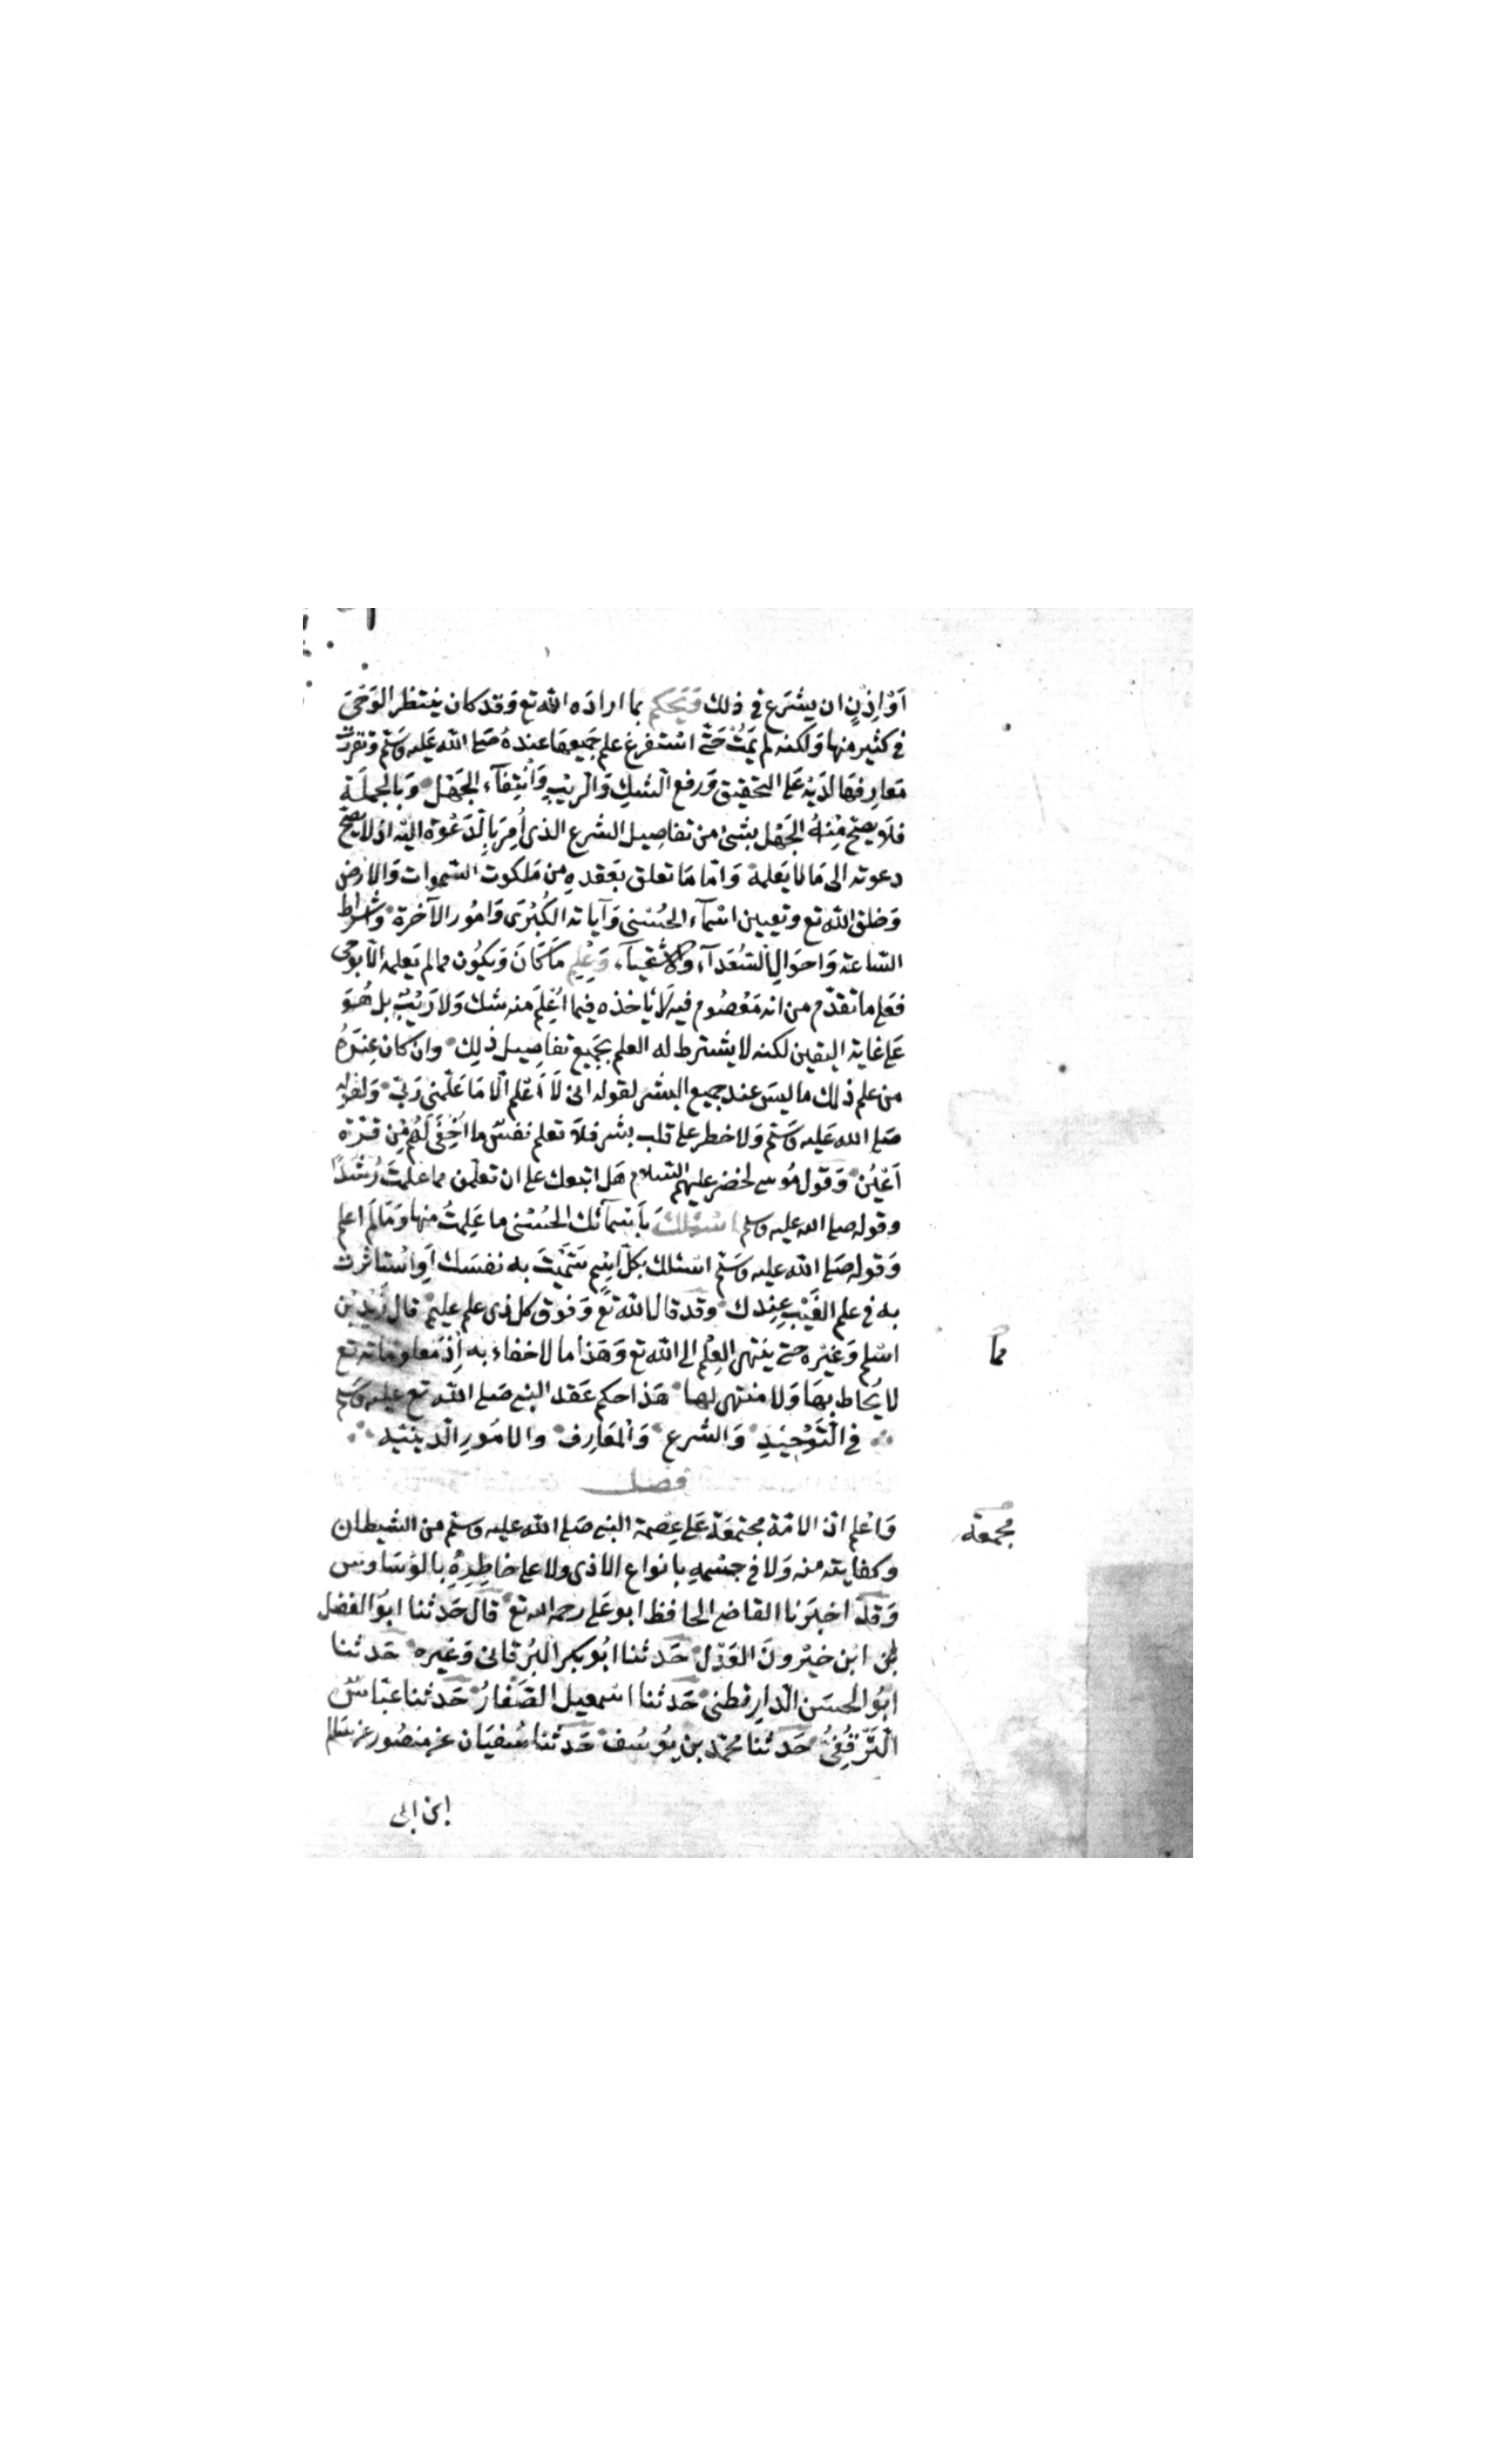 اَوْ اِذْنٍ ان يشرَع في ذلك وَيَحكم بما اراده الله تع وَقد كان ينتظر الوَحْىَ
في كثير منها وَلكنه لم يَمُتْ حَتّى استفرغ علم جَميعهَا عندهُ صَلى الله عَليه وَسَلم وتقررت
مَعارِفهَا لدَيْه عَلى التحقيق وَرفع الشكِ وَالريْبِ وَانْتِفآء الجَهْل وَبالجملَة
فلاَ يصحّ مِنْهُ الجَهْل بشئ من تفاصِيل الشرع الذى اُمِرَ بِالدّعْوَة اليْه اذ لا يصحّ
دعوته الى مَا لا يَعلمهُ وَامّا مَا تعلق بعَقدهِ من مَلكوت السّموات وَالارض
وَخلق الله تع وتعيين اسْمآء الحُسْنى وَآياته الكُبْرَى وَامُور الآخرة وَاشراط
السّاعة وَاحوَالِ السُّعَدآء والاشقيآء وَعِلْم مَا كَانَ وَيَكُون ممّا لم يَعلمه الاّ بوحى
فعَلى ما تقدّم من انه مَعْصُوم فيه لاَ يَاخذه فيما اُعْلِمَ منه شك وَلا رَيْبٌ بل هُوَ
عَلى غاية اليقين لكنه لا يشترط له العلم بجَميع تفاصِيل ذٰلِك وان كان عِنْدَهُ
من علم ذٰلك ما ليسَ عند جميع البشر لقوله انى لَا اَعْلم الاّ مَا عَلّمنى رَبّى وَلقوله
صَلى الله عَليه وَسَلم وَلا خطر على قلب بشر فلاَ تعلم نفسٌ ما اُخْفِىَ لَهُم مِّن قرّة
اَعْيُن وَقول مُوسى لخضر عليهم السّلام هَل اتبعك على ان تعلّمن مما علمتَ رُشدًا
وقوله صلى الله عليه وسلم اسْئلكَ بِاَسْمآئك الحُسْنى ما عَلِمتُ منها وَمَا لَم اعلم
وَقوله صَلى الله عليه وَسَلم اسْئلك بكلّ اسْمٍ سَمَّيْتَ به نفسَك اَوِ اسْتَاثرت
به في علم الغَيْب عِندك وقد قال الله تعَ وَفوق كل ذى علم عليم قال زَيْد بْن
اسْلم وَغيْره حتى يَنتهى العِلْم الى الله تع وَهَذا ما لا خفاء به اِذ مَعلومَاته تع
لا يُحَاط بهَا وَلا منتهى لهَا هَذا حكم عَقد النبى صَلى الله تع عليه وَسَلم
في التَّوْحِيْدِ وَالشرع وَالمَعَارِف والامُورِ الدّينيّة
مما
فصل
وَاعْلم انّ الامّة مجتمعَة عَلى عِصمة النبى صَلى الله عليه وسَلم من الشيطان
مجمعة
وكفايته منه وَلا في جسْمهِ بانواع الاذى ولا على خاطِرِهِ بالوَسَاوس
وَقد اخبَرَنا القاضى الحافظ ابو عَلى رحمه الله تع قال حَدثنا ابوُ الفضل
بْن ابْن خيْرونَ العَدْل حَدثنا ابُو بكر البُرقانى وَغيره حَدثنا
ابُو الحسَن الدّارقطنى حَدثنا اسْمعيل الصّفارُ حَدثنا عبّاسٌ
التَّرْقُفِىُّ حَدثنا محمّد بن يُوسُف حَدثنا سُفيَان عن منصُور عن سَالم
ابن ابى